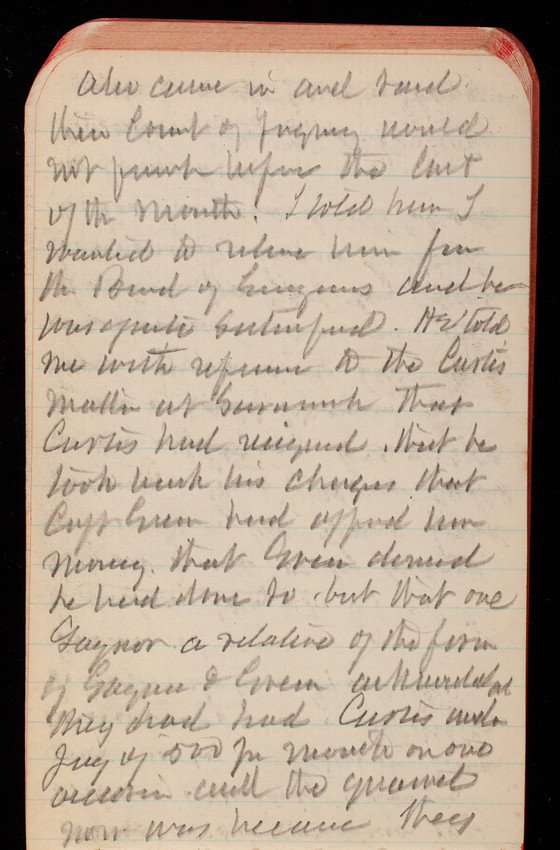 also came in and said
their Court of Inquiry would
not finish before the last
of the Month. I told him I
wanted to relieve him from
the Board of Engineers and he
was quite satisfied. He told
me with reference to the Curtis
matter at Savannah that
Curtis had resigned. that he
took back his charges that
Capt Green had offered him
money. that Green denied
he had done so but that one
Gaynor a relative of the firm
of Gaynor & Green acknowledged
they had had Curtis under
pay of 500 per month on one
occasion and the quarrel
now was because they